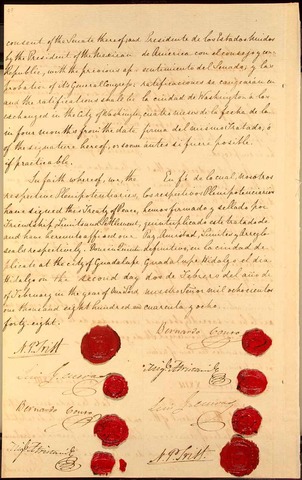 consent of the Senate thereof; and
by the President of the Mexican
Republic, with the previous ap-
probation of its General Congress;
and the ratifications shall be
exchanged in the City of Washington,
in four months from the date
of the signature hereof, or sooner
if practicable.
In faith whereof, we, the
respective Plenipotentiaries,
have signed this Treaty of Peace,
Friendship, Limits and Settlement,
and have hereunto affixed our
seals respectively. Done in Quintu-
plicate at the City of Guadalupe
Hidalgo on the second day
of February in the year of Our Lord
one thousand eight hundred and
forty-eight.
N. P. Trist
Luis G. Cuevas
Bernardo Couto
Migl. Atristain
Presidente de los Estados Unidos
de America con el consejo y con-
sentimiento del Senado, y las
ratificaciones se cangearán en
la ciudad de Washington a los
cuatro meses de la fecha de la
firma del mismo Tratado, ó
antes si fuere posible.
En fé de lo cual, nosotros
los respectivos Plenipotenciarios
hemos firmado y sellado por
quintuplicado este tratado de
Paz, Amistad, Limites y Arreglo
definitivo, en la ciudad de
Guadalupe Hidalgo el dia
dos de Febrero del año de
nuestro Señor mil ochocientos
cuarenta y ocho.
Bernardo Couto
Migl. Atristain
Luis G. Cuevas
N. P. Trist